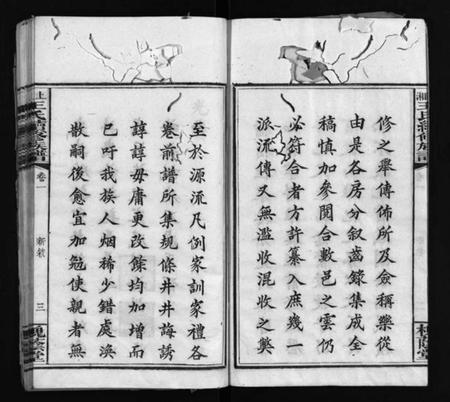 修之舉傳佈所及僉稱樂從
由是各房分叙齒錄集成全
稿慎加參閱合數邑之雲仍
必符合者方許纂入庶幾一
派流傳又無濫收混收之獘
至於源流凡例家訓家禮各
卷前譜所集規條井井誨誘
諄諄毋庸更改餘均加增而
已吁我族人烟稀少錯處渙
散嗣後愈宜加勉使親者無
王氏續修族譜
卷一
新敘
三
槐蔭堂